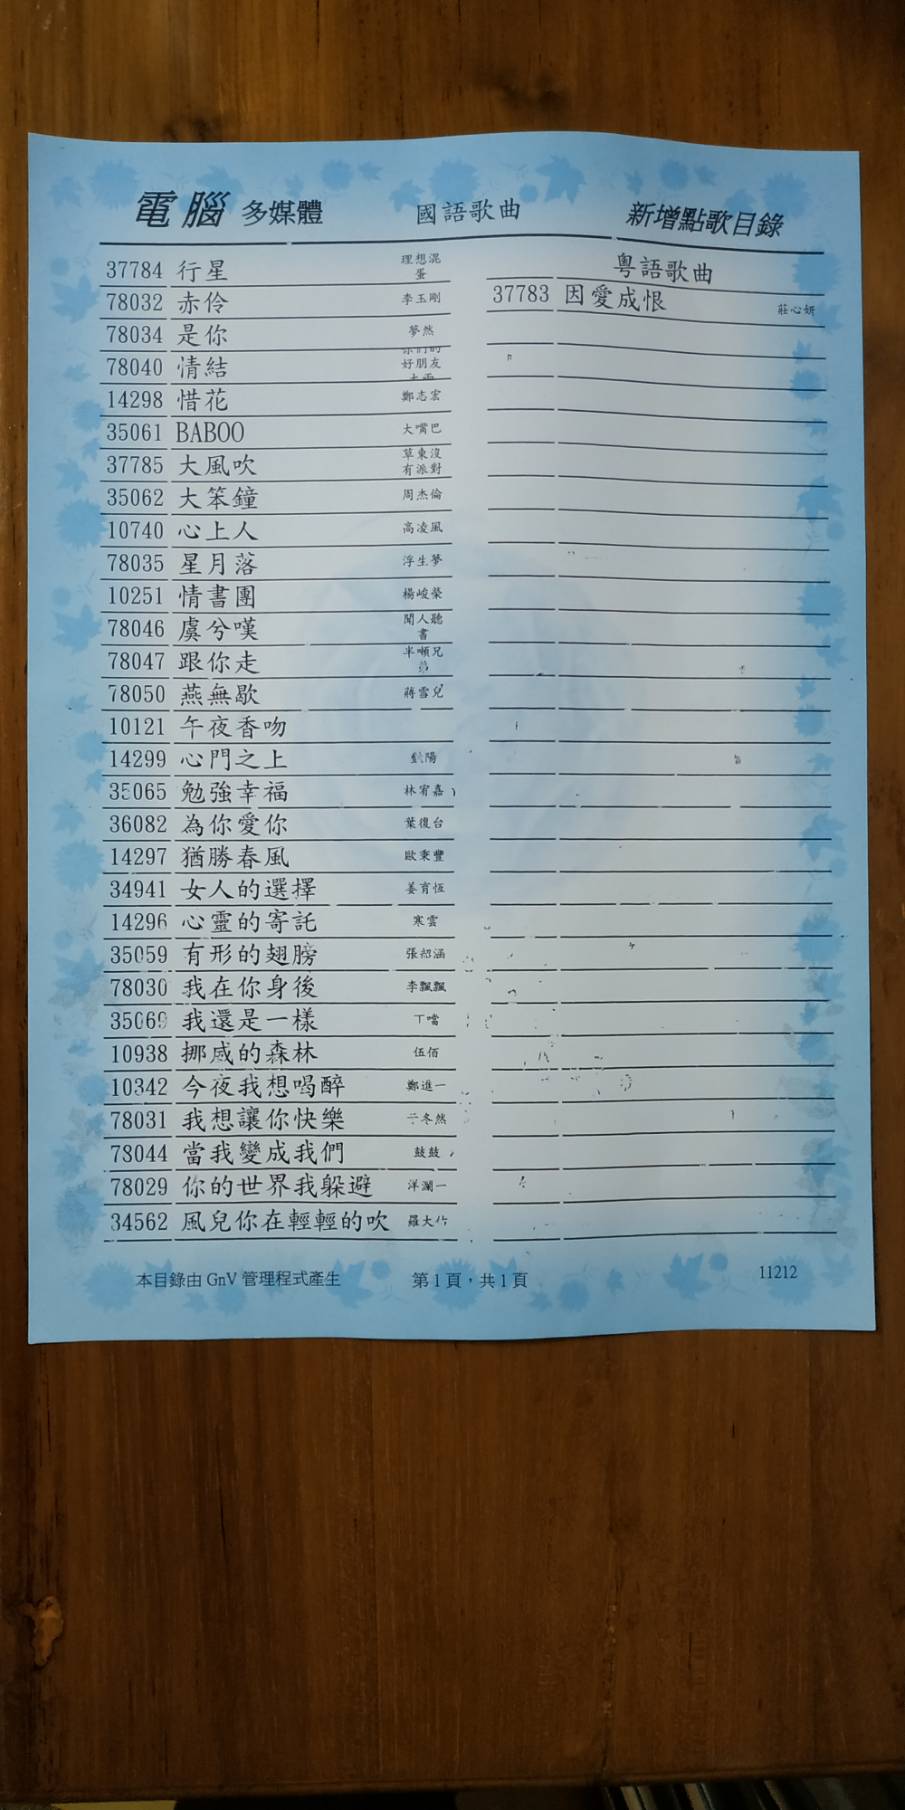 電腦 多媒體 國語歌曲 新增點歌目錄
37784 行星 理想混蛋
78032 赤伶 李玉剛
78034 是你 夢然
78040 情結 你們的好朋友
14298 惜花 鄭志宏
35061 BABOO 大嘴巴
37785 大風吹 草東沒有派對
35062 大笨鐘 周杰倫
10740 心上人 高凌風
78035 星月落 浮生夢
10251 情書團 楊峻榮
78046 虞兮嘆 聞人聽書
78047 跟你走 半噸兄弟
78050 燕無歇 蔣雪兒
10121 午夜香吻
14299 心門之上 陽
35065 勉強幸福 林宥嘉
36082 為你愛你 葉復台
14297 猶勝春風 歐秉豐
34941 女人的選擇 姜育恆
14296 心靈的寄託 寒雲
35059 有形的翅膀 張韶涵
78030 我在你身後 李飄飄
35069 我還是一樣 丁噹
10938 挪威的森林 伍佰
10342 今夜我想喝醉 鄭進一
78031 我想讓你快樂 于冬然
78044 當我變成我們 鼓鼓
78029 你的世界我躲避 洋瀾一
34562 風兒你在輕輕的吹 羅大佑
粵語歌曲
37783 因愛成恨 莊心妍
本目錄由 GnV 管理程式產生 第1頁，共1頁 11212